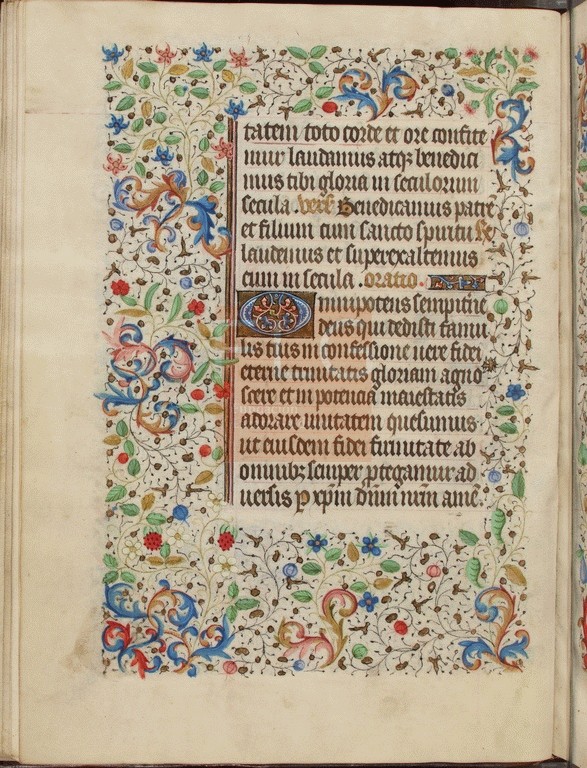 tatem toto corde et ore confite
mur laudamus atqȝ benedici
mus tibi gloria in seculorum
secula .vers. Benedicamus patrē
et filium cum sancto spiritu Re
laudemus et superexaltemus
eum in secula .oratio.
Omnipotens sempiterne
deus qui dedisti famu
lis tuis in confessione uere fidei
eterne trinitatis gloriam agno
scere et in potencia maiestatis
adorare unitatem quesumus
ut eiusdem fidei firmitate ab
omnibȝ semper ꝓtegamur ad
uersis ꝑ xp̄m dn̄m nr̄m amē.